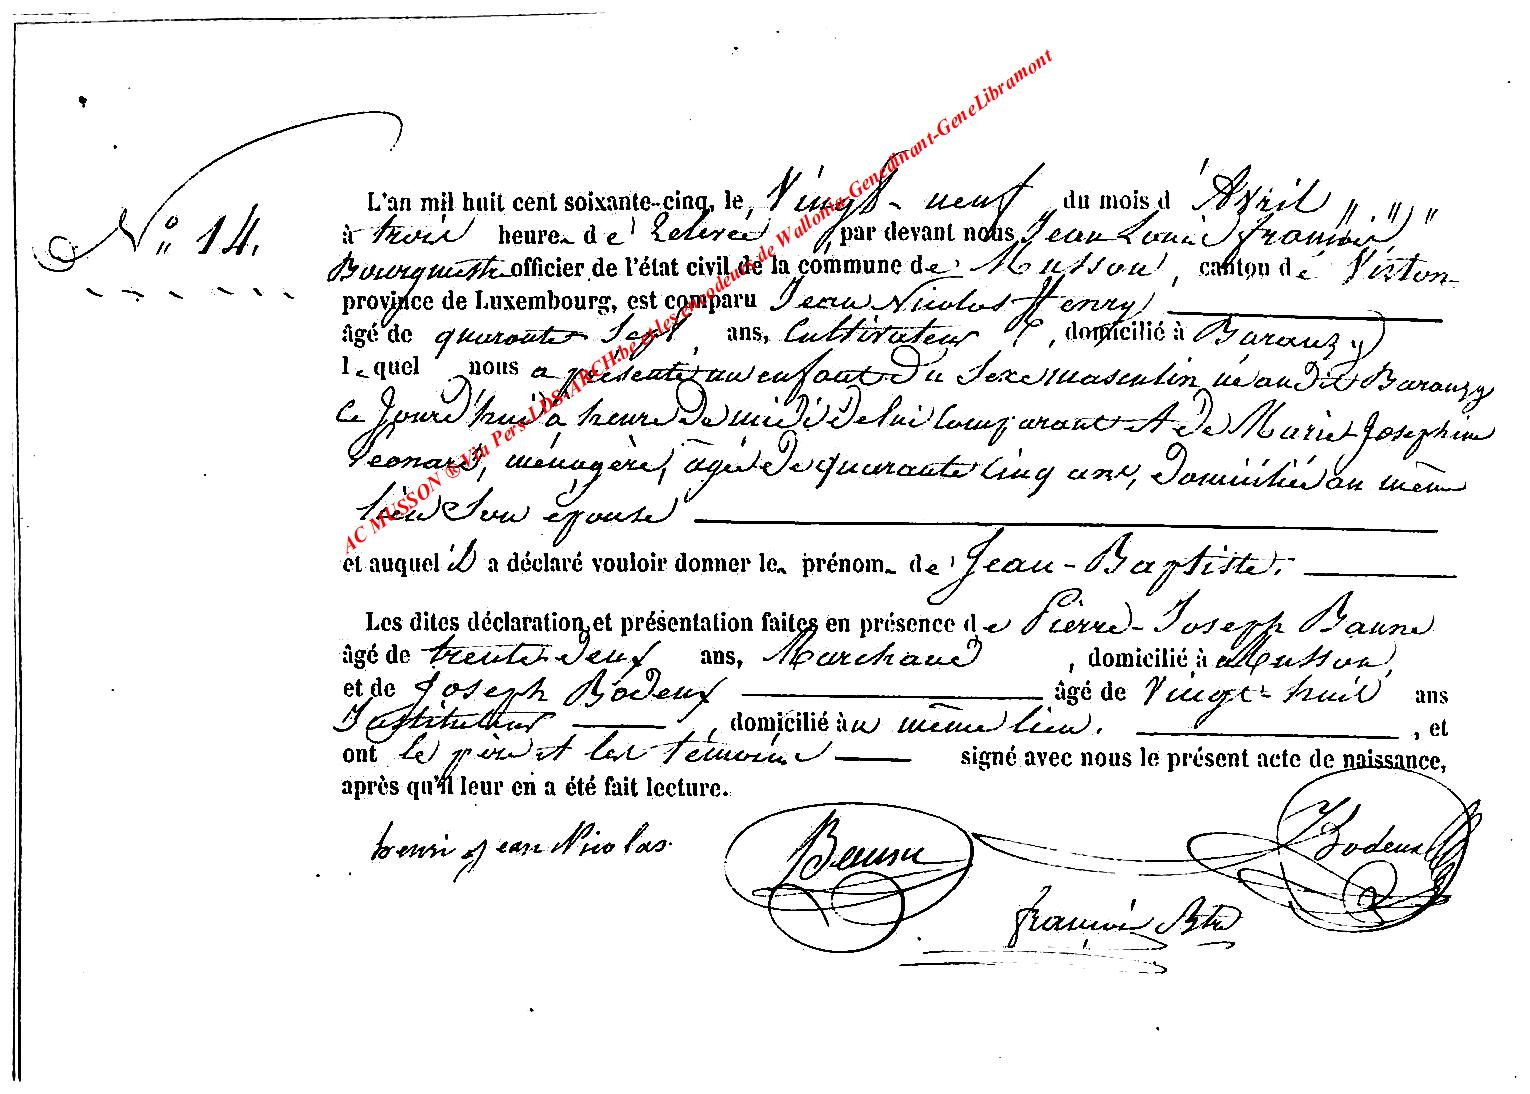 N° 14.
L'an mil huit cent soixante-cinq, le Vingt-neuf du mois d'Avril
à trois heure de relevée par devant nous Jean Louis François,
Bourgmestre officier de l'état civil de la commune de Musson, canton de Virton
province de Luxembourg, est comparu Jean Nicolas Henry
âgé de quarante sept ans, Cultivateur, domicilié à Baranzy
lequel nous a présenté un enfant du sexe masculin, né audit Baranzy
ce jourd'hui à heure de midi de lui comparant et de Marie Josephine
Leonard, ménagère, âgée de quarante cinq ans, domiciliée au même
lieu son épouse
et auquel il a déclaré vouloir donner le prénom de Jean-Baptiste.
Les dites déclaration et présentation faites en présence de Pierre-Joseph Baune
âgé de trente-deux ans, Marchand, domicilié à Musson,
et de Joseph Bodeux âgé de Vingt-huit ans
Instituteur, domicilié au même lieu., et
ont le père et les témoins signé avec nous le présent acte de naissance,
après qu'il leur en a été fait lecture.
henri jean Nicolas Baune J Bodeux
François Btre
AC MUSSON ® Via Pers-LDS-ARCH.be et les encodeurs de Wallonia-Genedinant-GeneLibramont